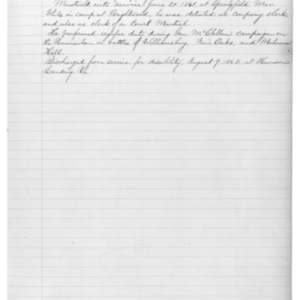 Mustered into service June 21, 1861 at Springfield Mass.
While in camp at Brightwood, he was detailed as company clerk
and also as clerk of a Court Martial.
He performed regular duty during Gen. McClellan campaign on
the Peninsula in battles of Williamsburg, Fair Oaks, and Malvern
Hill.
Discharged from service for disability, August 7, 1862 at Harrison
Landing Va.